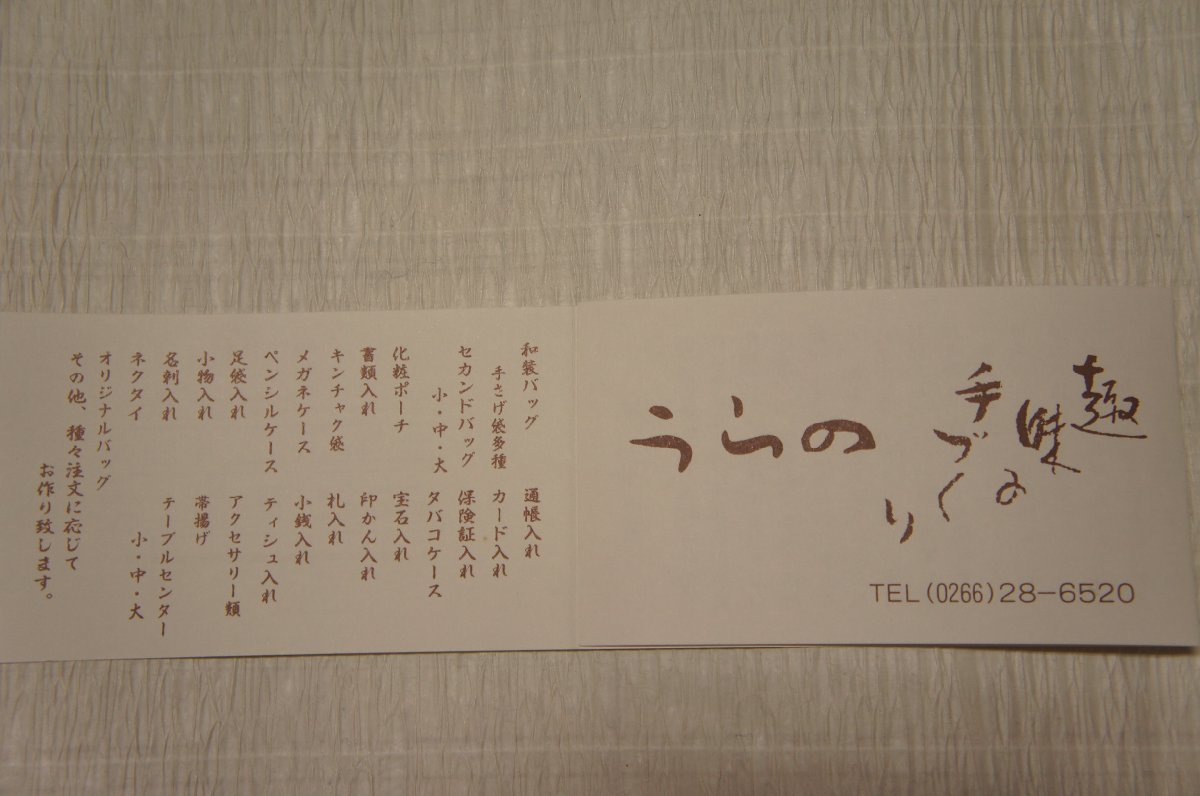 趣味の
手づくり
うらの
TEL(0266)28-6520
和装バッグ
手さげ袋多種
セカンドバッグ
小・中・大
化粧ポーチ
書類入れ
キンチャク袋
メガネケース
ペンシルケース
足袋入れ
小物入れ
名刺入れ
ネクタイ
オリジナルバッグ
通帳入れ
カード入れ
保険証入れ
タバコケース
宝石入れ
印かん入れ
札入れ
小銭入れ
ティシュ入れ
アクセサリー類
帯揚げ
テーブルセンター
小・中・大
その他、種々注文に応じて
お作り致します。